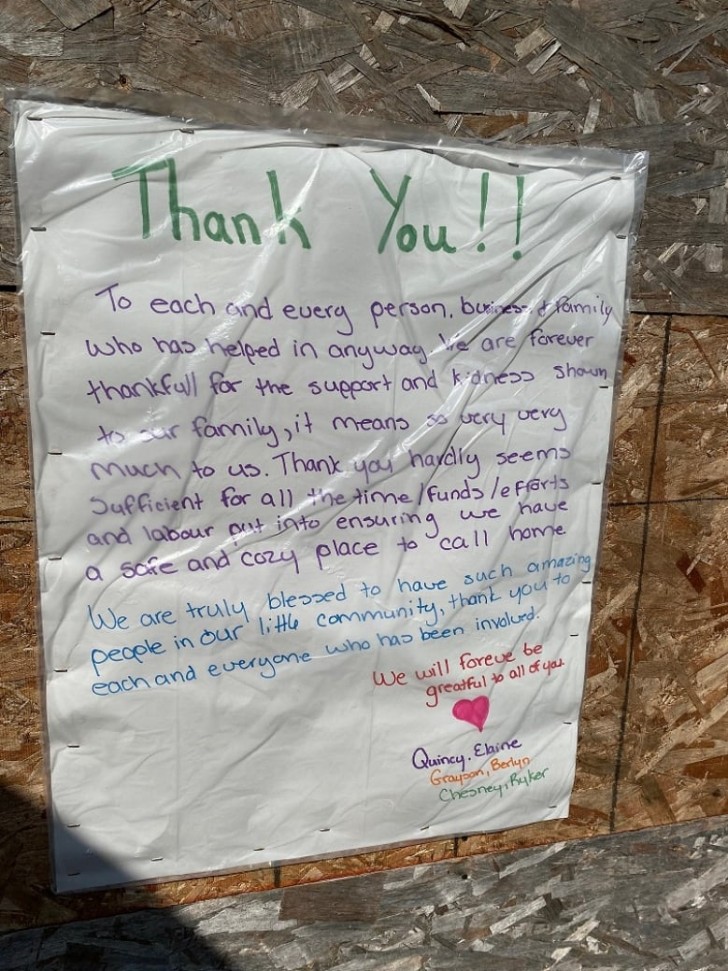 Thank You!!
To each and every person, business & family
who has helped in anyway. We are forever
thankfull for the support and kidness shown
to our family, it means so very very
much to us. Thank you hardly seems
Sufficient for all the time/funds/efforts
and labour put into ensuring we have
a safe and cozy place to call home.
We are truly blessed to have such amazing
people in our little community, thank you to
each and everyone who has been involved.
We will foreve be
greatful to all of you.
Quincy. Elaine
Grayson, Berlyn
Chesney, Ryker